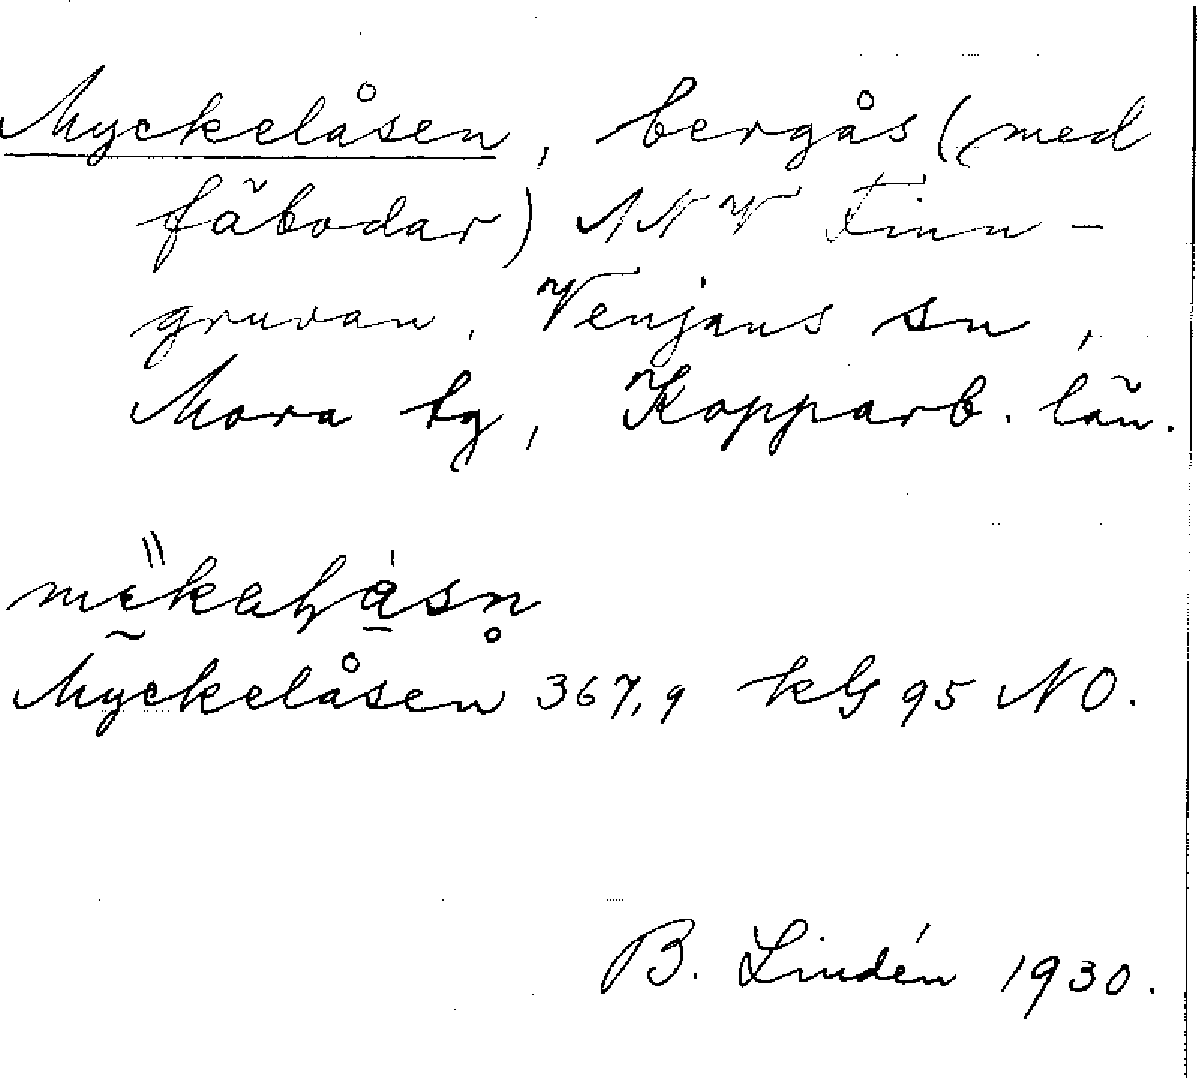 Myckelåsen, bergås (med
fäbodar) NNV Finn-
gruvan. Venjans sn,
Mora tg, Kopparb. län.
Myckelåsen 367,9 kG 95 NO.
B. Lindén 1930.